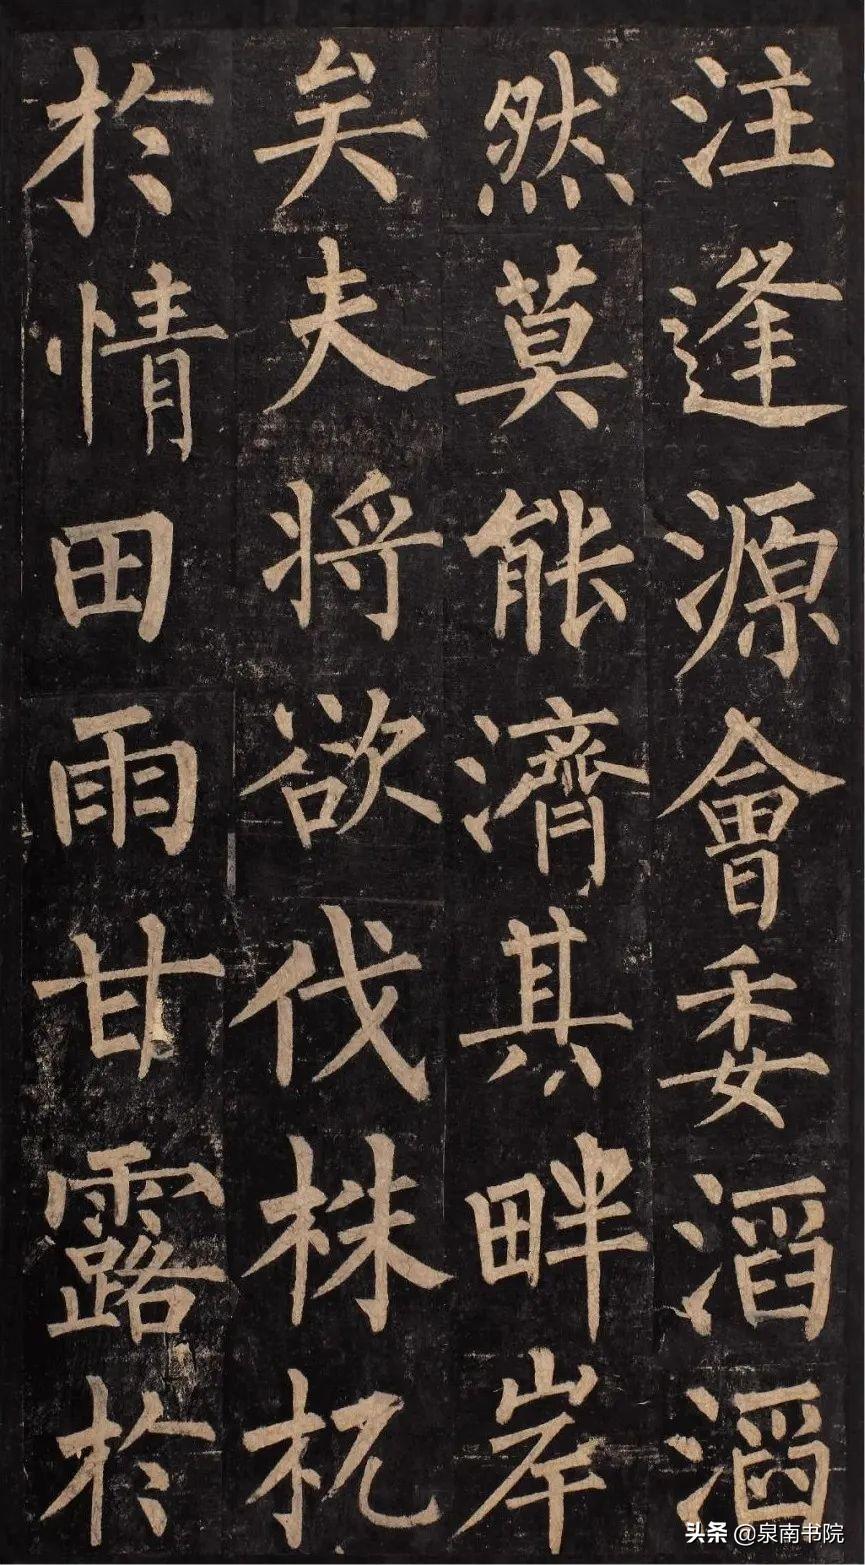 注逢源會委滔滔
然莫能濟其畔岸
矣夫將欲伐株杌
於情田雨甘露於
头条 @泉南书院